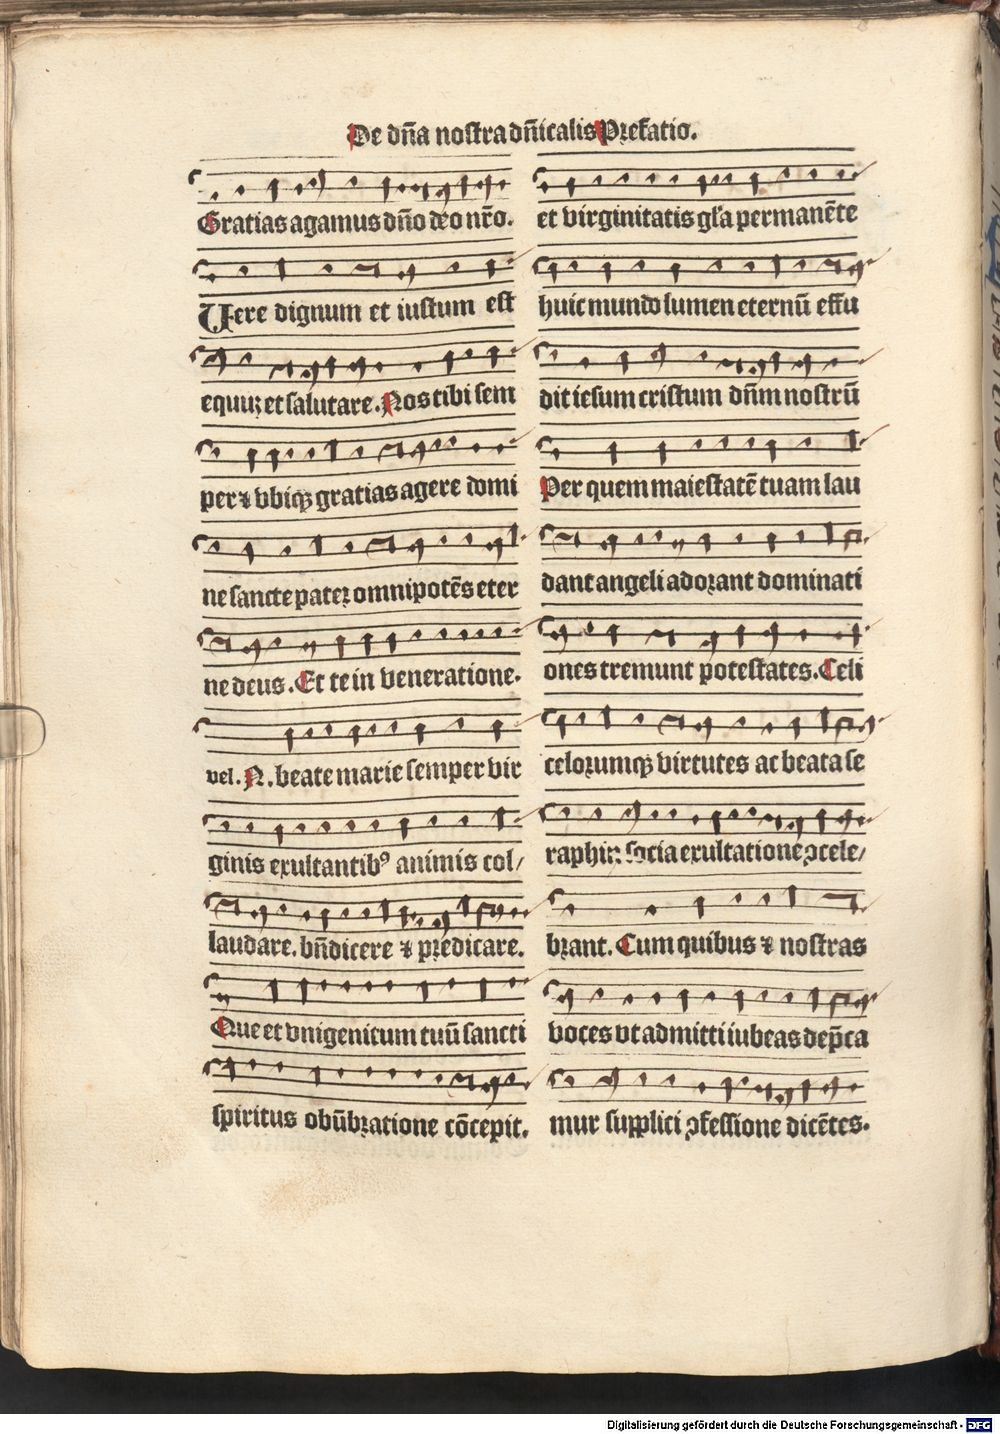 De dn̄a nostra dn̄icalis Prefatio.
Gratias agamus dn̄o deo nr̄o.
Uere dignum et iustum est
equuꝫ et salutare. Nos tibi sem
per ⁊ vbiqꝫ gratias agere domi
ne sancte pater omnipotēs eter
ne deus. Et te in veneratione.
vel. N. beate marie semper vir
ginis exultantibꝰ animis col/
laudare. bn̄dicere ⁊ predicare.
Que et vnigenitum tuū sancti
spiritus obūbratione cōcepit.
et virginitatis gl'a permanēte
huic mundo lumen eternū effu
dit iesum cristum dn̄m nostrū
Per quem maiestatē tuam lau
dant angeli adorant dominati
ones tremunt potestates. Celi
celorumqꝫ virtutes ac beata se
raphin socia exultatione ꝯcele/
brant. Cum quibus ⁊ nostras
voces vt admitti iubeas dep̄ca
mur supplici ꝯfessione dicētes.
Digitalisierung gefördert durch die Deutsche Forschungsgemeinschaft - DFG